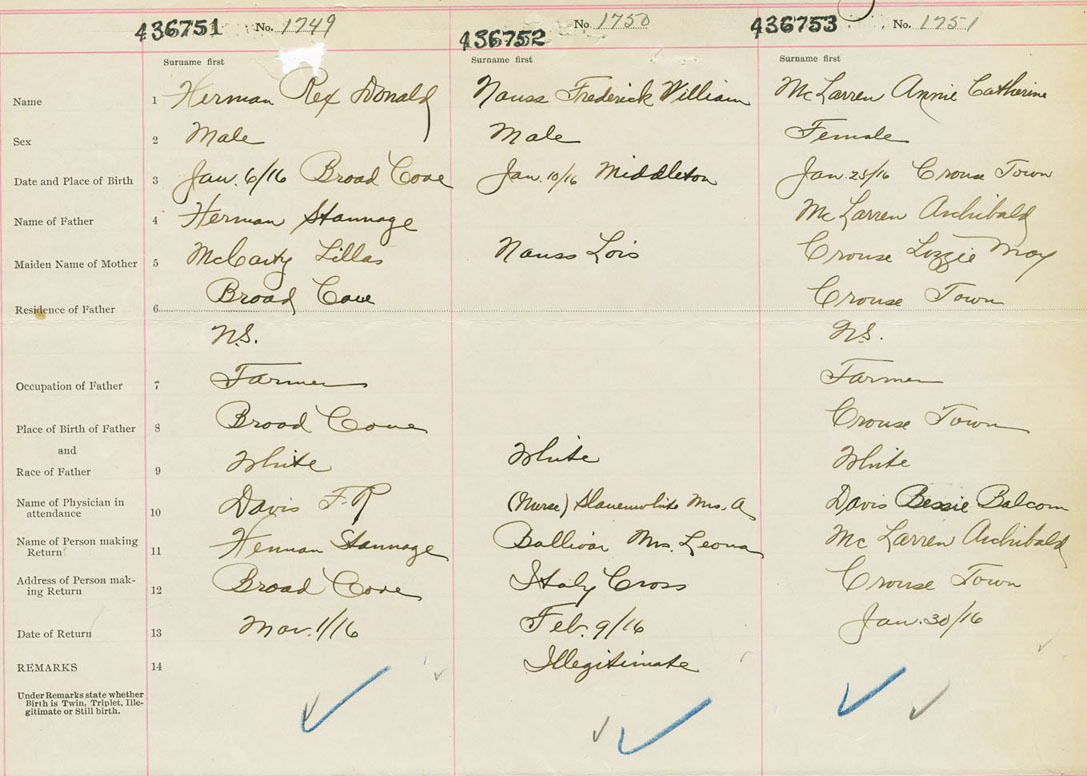 436751 No. 1749 436752 No. 1750 436753 No. 1751
Surname first Surname first Surname first
Name 1 Herman Rex Donald Nauss Frederick William McLarren Annie Catherine
Sex 2 Male Male Female
Date and Place of Birth 3 Jan. 6/16 Broad Cove Jan. 10/16 Middleton Jan. 25/16 Crouse Town
Name of Father 4 Herman Stannage McLarren Archibald
Maiden Name of Mother 5 McCarty Lillas Nauss Lois Crouse Lozzie May
Residence of Father 6 Broad Cove Crouse Town
N.S. N.S.
Occupation of Father 7 Farmer Farmer
Place of Birth of Father 8 Broad Cove Crouse Town
and
Race of Father 9 White White White
Name of Physician in
attendance 10 Davis F. R (Nurse) Mrs. A Davis Bessie Balcom
Name of Person making
Return 11 Herman Stannage Bollivar Mrs. Leona McLarren Archibald
Address of Person mak-
ing Return 12 Broad Cove Italy Cross Crouse Town
Date of Return 13 Mar. 1/16 Feb. 9/16 Jan. 30/16
REMARKS 14 Illegitimate
Under Remarks state whether
Birth is Twin, Triplet, Ille-
gitimate or Still birth.